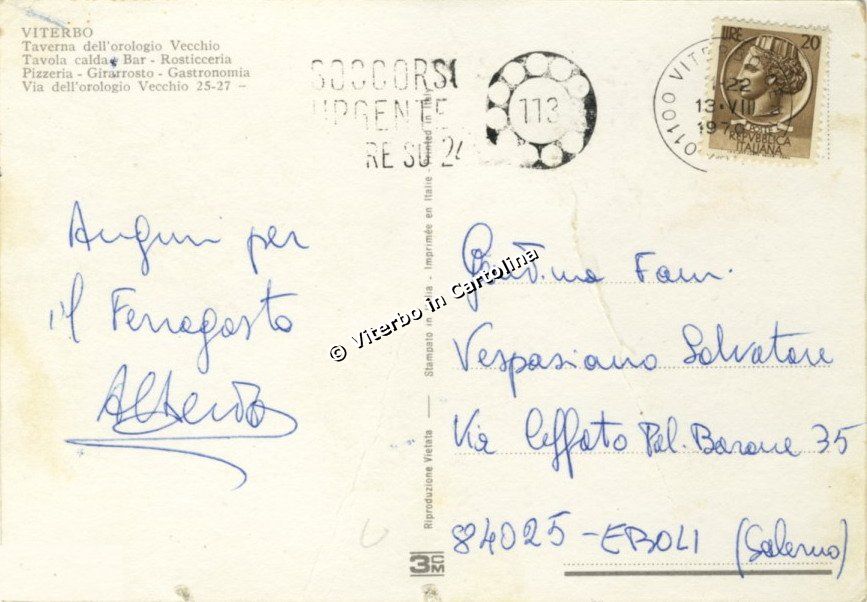 VITERBO
Taverna dell'orologio Vecchio
Tavola calda - Bar - Rosticceria
Pizzeria - Girarrosto - Gastronomia
Via dell'orologio Vecchio 25-27 -
SOCCORSI
URGENTE
RE SU 24
113
01100 VITERBO
22
13·VIII
197
LIRE 20
POSTE
REPVBBLICA
ITALIANA
Auguri per
il Ferragosto
Alberto
Stampato in Italia - Imprimée en Italie - Printed in Italy
Riproduzione Vietata
3CM
© Viterbo in Cartolina
Gent.ma Fam.
Vespasiano Salvatore
Via Ceffato Pal. Barone 35
84025 - EBOLI (Salerno)